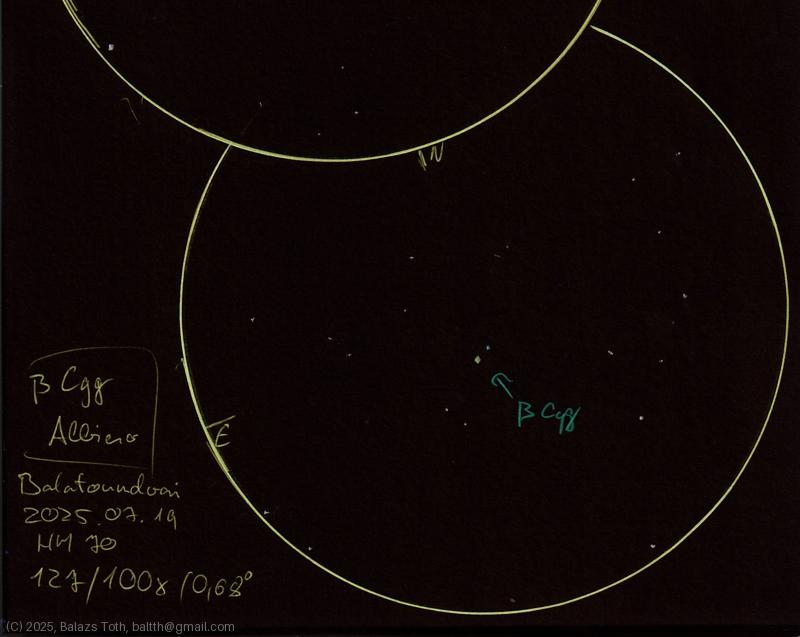 N
β Cyg
E
β Cyg
Albireo
2025.07.19
HM 70
127/100x/0,68°
(C) 2025, Balazs Toth, baltth@gmail.com